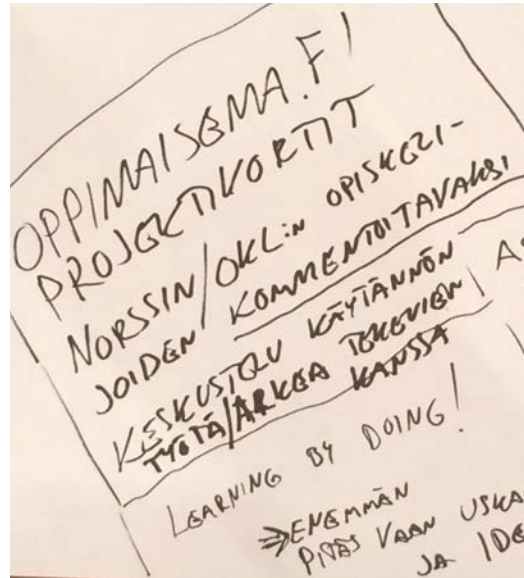 OPPIMAISEMA.FI
PROJEKTIKORTIT
NORSSIN/OKL:N OPISKELI-
JOIDEN KOMMENTOITAVAKSI
KESKUSTELU KÄYTÄNNÖN
TYÖTÄ/ARKEA TEKEVIEN
KANSSA
LEARNING BY DOING!
⇒ ENEMMÄN
PITÄS VAAN USKA
JA IDE